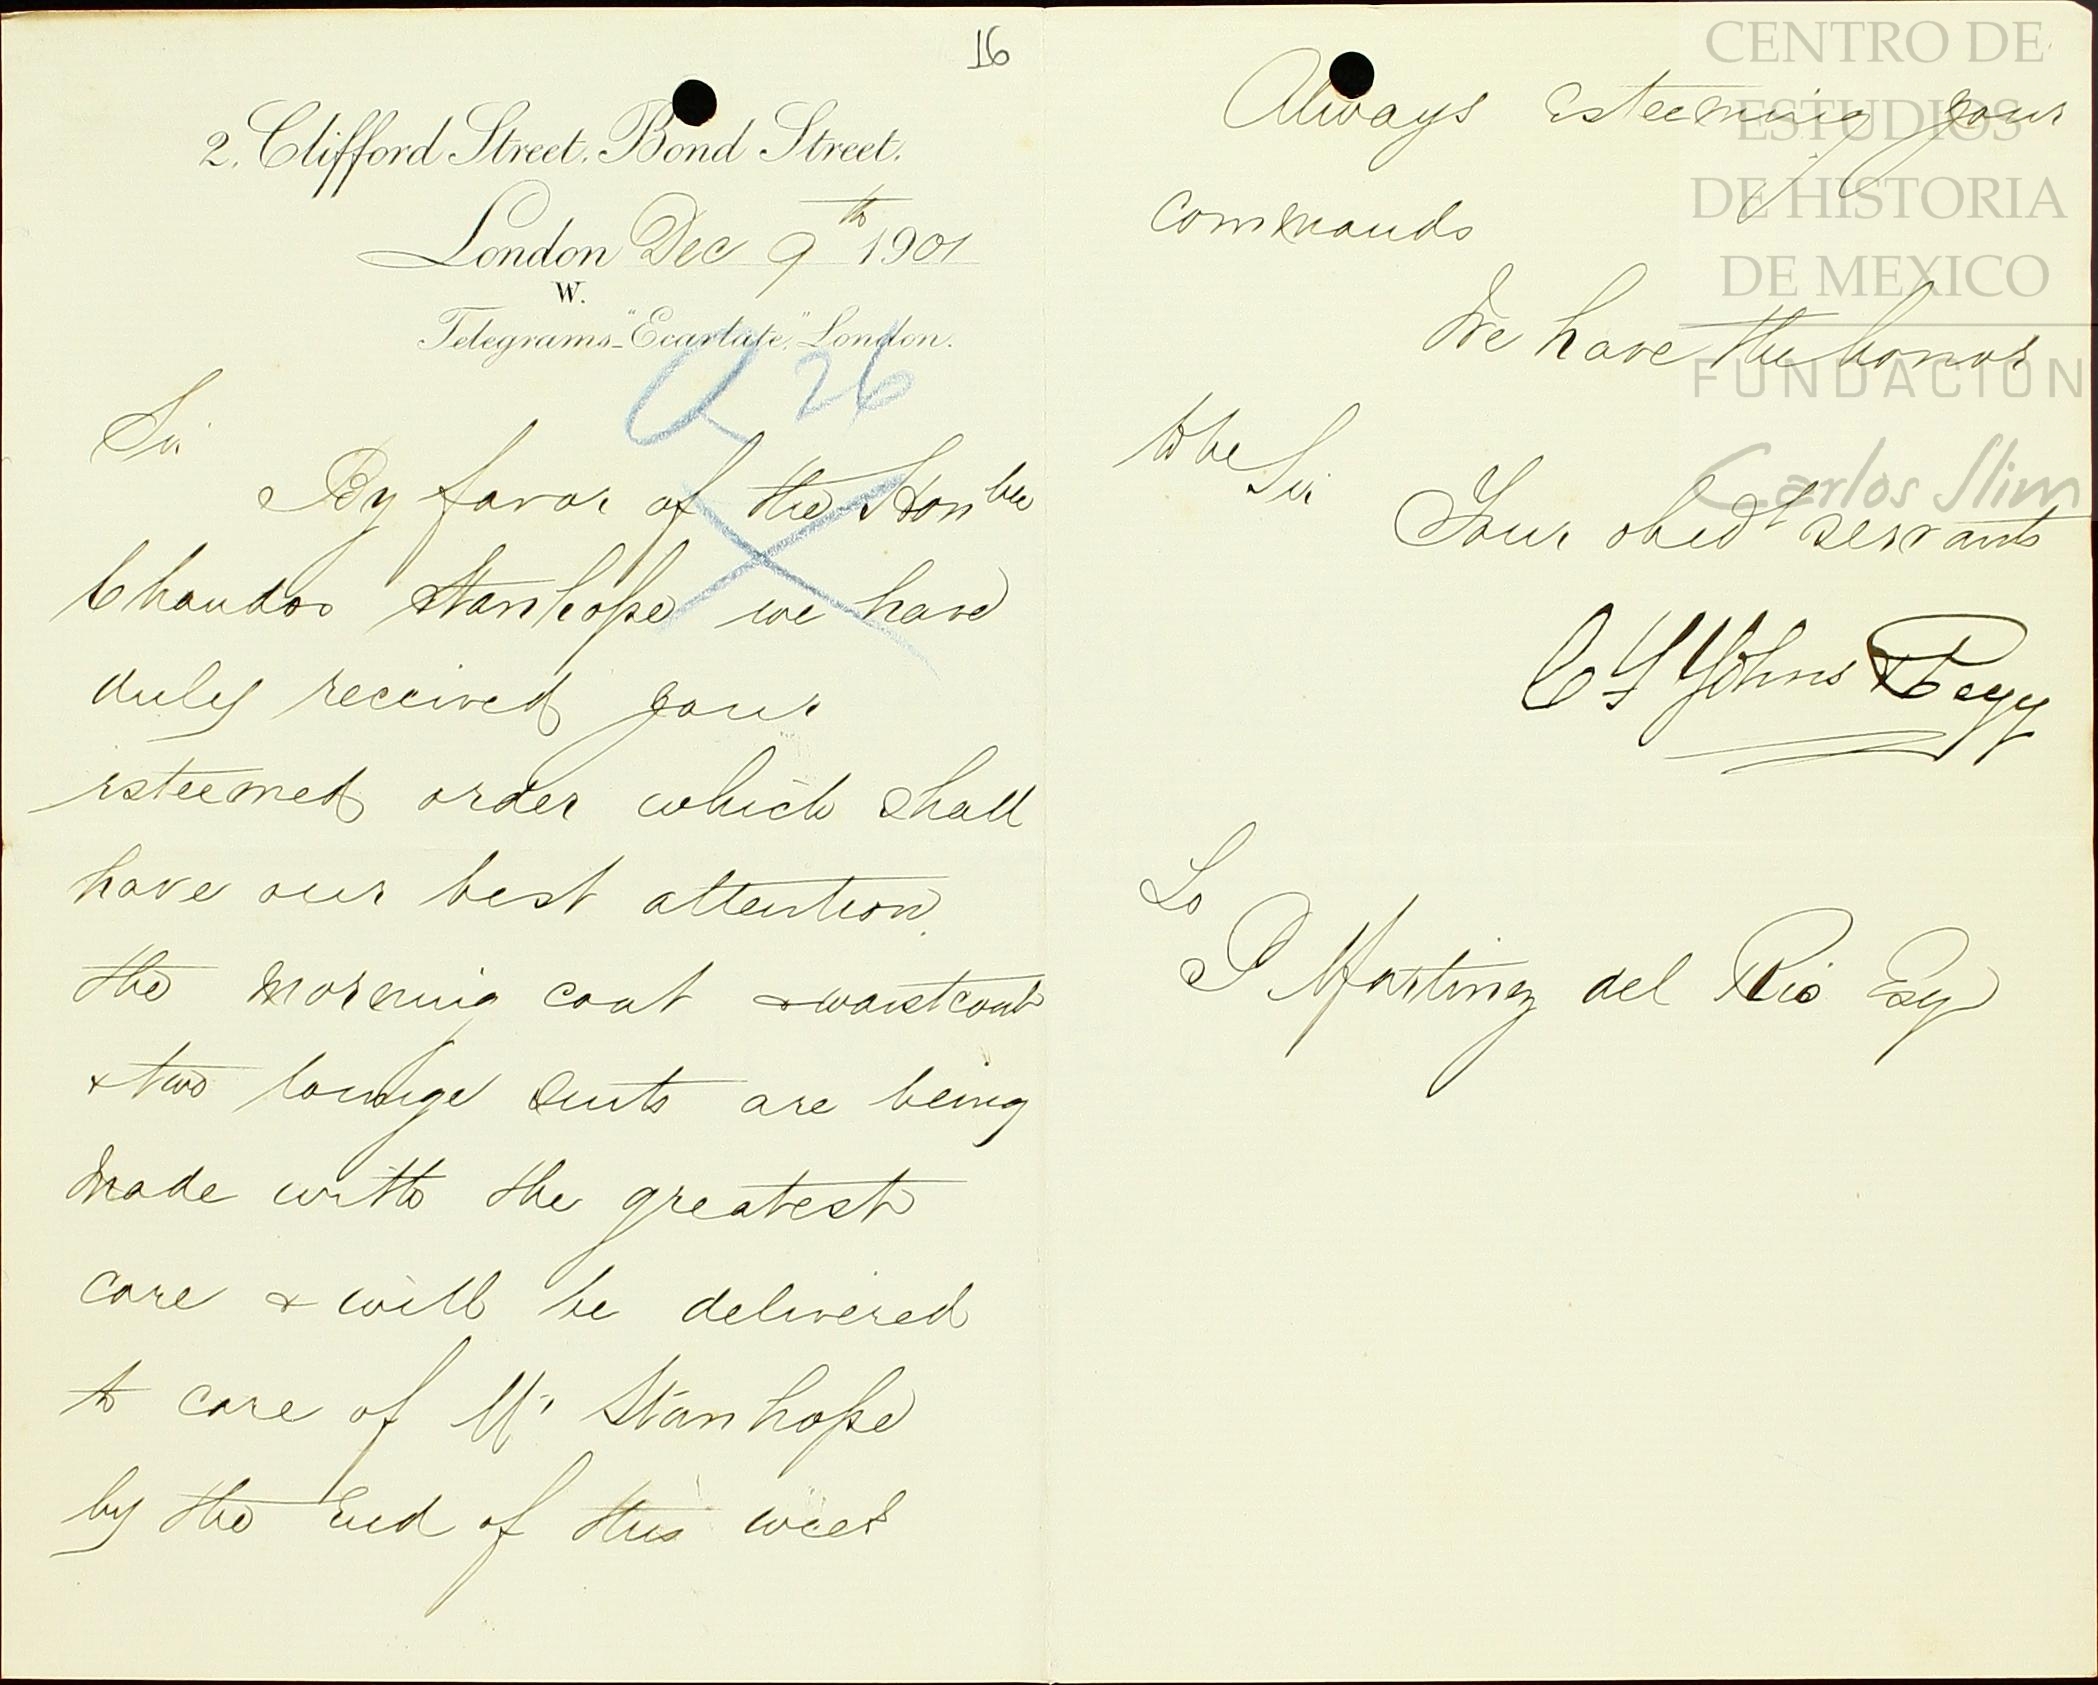 16
2, Clifford Street, Bond Street,
London Dec 9th 1901
W.
Telegrams "Ecartate," London.
a 26
Sir
By favor of the Honble
Chandos Stanhope we have
duly received your
esteemed order which shall
have our best attention.
the morning coat & waistcoat
& two lounge suits are being
made with the greatest
care & will be delivered
to care of Mr Stanhope
by the End of this week
Always esteeming your
commands
We have the honor
to be Sir
Your obedt servants
Johns & Pegg
To
P Martinez del Rio Esq
CENTRO DE
ESTUDIOS
DE HISTORIA
DE MEXICO
FUNDACIÓN
Carlos Slim